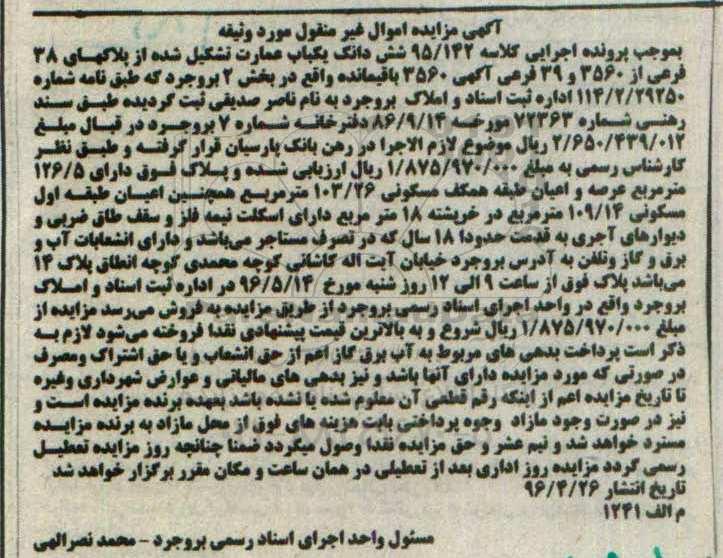 آگهی مزایده اموال غیر منقول مورد وثیقه
بموجب پرونده اجرایی کلاسه ۹۵/۱۴۲ شش دانگ یکباب عمارت تشکیل شده از پلاکهای ۳۸
فرعی از ۳۵۶۰ و ۳۹ فرعی آگهی ۳۵۶۰ باقیمانده واقع در بخش ۲ بروجرد که طبق نامه شماره
۱۱۴/۲/۲۹۲۵۰ اداره ثبت اسناد و املاک بروجرد به نام ناصر صدیقی ثبت گردیده طبق سند
رهنی شماره ۷۲۳۶۳ مورخه ۸۶/۹/۱۴ دفترخانه شماره ۷ بروجرد در قبال مبلغ
۲/۶۵۰/۴۳۹/۰۱۲ ریال موضوع لازم الاجرا در رهن بانک پارسیان قرار گرفته و طبق نظر
کارشناس رسمی به مبلغ ۱/۸۷۵/۹۷۰/۰۰۰ ریال ارزیابی شده و پلاک فوق دارای ۱۲۶/۵
مترمربع عرصه و اعیان طبقه همکف مسکونی ۱۰۳/۲۶ مترمربع همچنین اعیان طبقه اول
مسکونی ۱۰۹/۱۴ مترمربع در خرپشته ۱۸ متر مربع دارای اسکلت نیمه فلز و سقف طاق ضربی و
دیوارهای آجری به قدمت حدودا ۱۸ سال که در تصرف مستاجر می‌باشد و دارای انشعابات آب و
برق و گاز وتلفن به آدرس بروجرد خیابان آیت اله کاشانی کوچه محمدی کوچه انطاق پلاک ۱۴
می‌باشد پلاک فوق از ساعت ۹ الی ۱۲ روز شنبه مورخ ۹۶/۵/۱۴ در اداره ثبت اسناد و املاک
بروجرد واقع در واحد اجرای اسناد رسمی بروجرد از طریق مزایده به فروش می‌رسد مزایده از
مبلغ ۱/۸۷۵/۹۷۰/۰۰۰ ریال شروع و به بالاترین قیمت پیشنهادی نقدا فروخته می‌شود لازم به
ذکر است پرداخت بدهی های مربوط به آب برق گاز اعم از حق انشعاب و یا حق اشتراک ومصرف
در صورتی که مورد مزایده دارای آنها باشد و نیز بدهی های مالیاتی و عوارض شهرداری وغیره
تا تاریخ مزایده اعم از اینکه رقم قطعی آن معلوم شده یا نشده باشد بعهده برنده مزایده است و
نیز در صورت وجود مازاد وجوه پرداختی بابت هزینه های فوق از محل مازاد به برنده مزایده
مسترد خواهد شد و نیم عشر و حق مزایده نقدا وصول میگردد ضمنا چنانچه روز مزایده تعطیل
رسمی گردد مزایده روز اداری بعد از تعطیلی در همان ساعت و مکان مقرر برگزار خواهد شد
تاریخ انتشار ۹۶/۴/۲۶
م الف ۱۲۴۱
مسئول واحد اجرای اسناد رسمی بروجرد - محمد نصرالهی